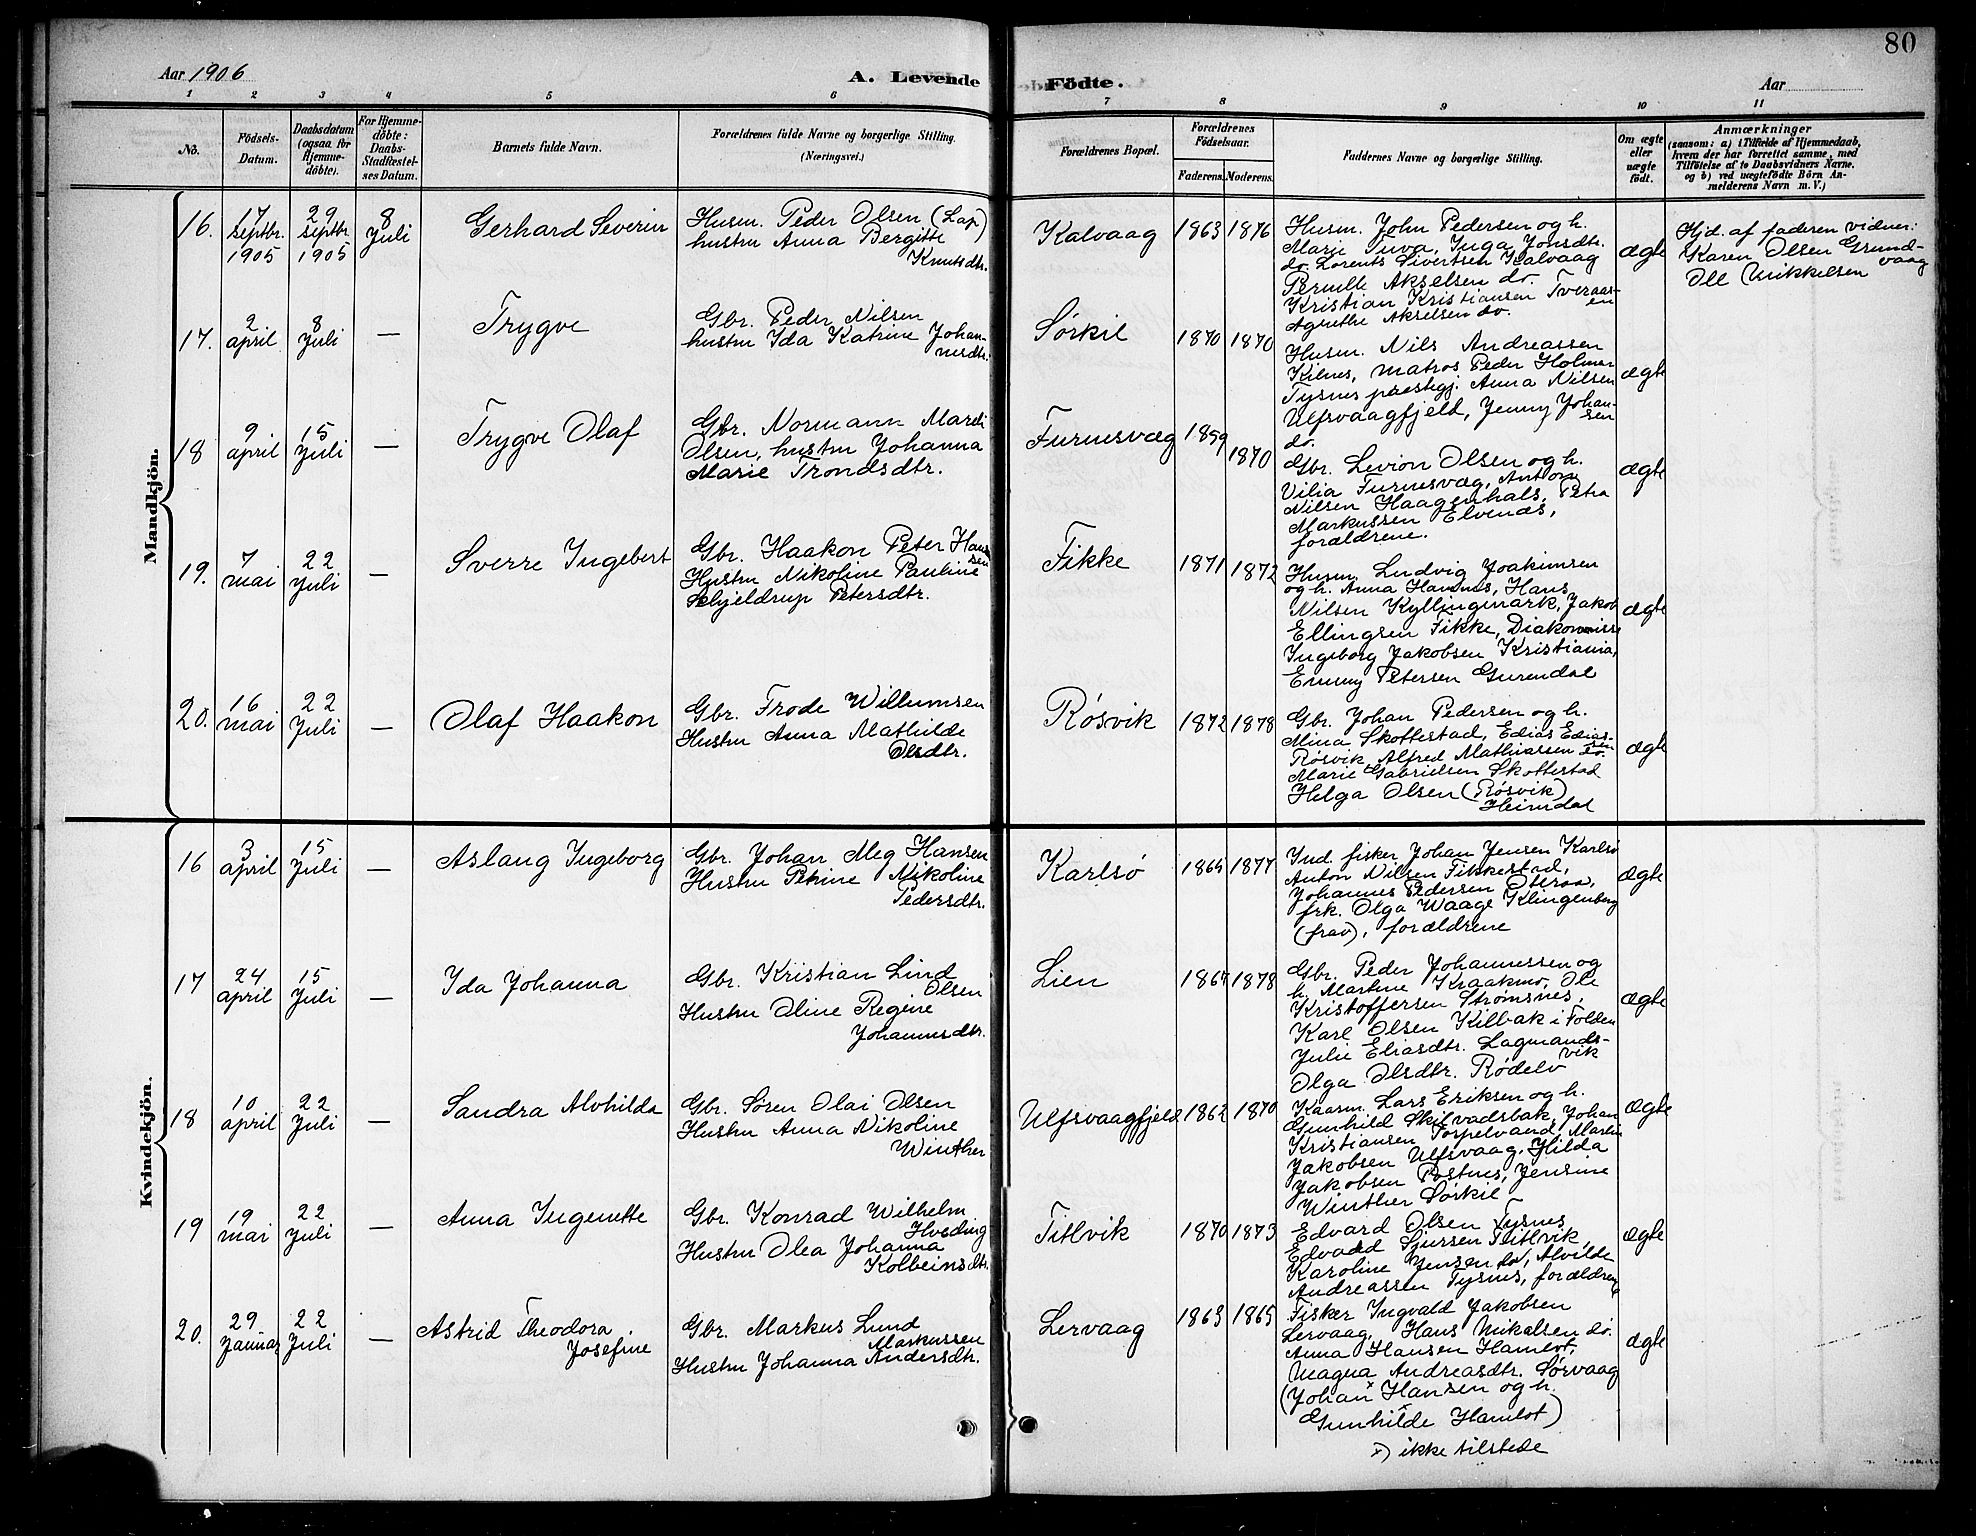 80
Aar 1906
A. Levende Födte.
Aar
1 2 3 4 5 6 7 8 9 10 11
No.
Födsels-
Datum.
Daabsdatum
(ogsaa for
Hjemme-
döbte).
For Hjemme-
döbte:
Daabs-
Stadfæstel-
ses Datum.
Barnets fulde Navn.
Forældrenes fulde Navne og borgerlige Stilling.
(Næringsvei.)
Forældrenes Bopæl.
Forældrenes
Födselsaar.
Faderens. Moderens.
Faddernes Navne og borgerlige Stilling.
Om ægte
eller
uægte
födt.
Anmærkninger
(saasom: a) i Tilfælde af Hjemmedaab,
hvem der har forrettet samme, med
Tilföielse af to Daabsvidners Navne,
og b) ved uægtefödte Börn An-
melderens Navn m. V.)
Mandkjön.
16.
17
septbr.
1905
29
septbr
1905
8
Juli
Gerhard Severin
Husm. Peder Olsen (Lap)
hustru Anna Bergitte
Knutsdtr.
Kalvaag
1863 1876
Husm. John Pedersen og h.
Marie Tuva, Inga Jonsdtr.
do. Lorents Sivertsen Kalvaag
Pernille Akselsen do.
Kristian Kristiansen Tveraas-
en
Agnethe Akselsen do.
ægte
Hjd. af faderen vidner:
Karen Olsen Grund-
vaag
Ole Mikkelsen
17.
2
april
8
Juli
—
Trygve
Gbr. Peder Nilsen
hustru Ida Katrine Johan-
nesdtr.
Sörkil
1870 1870
Husm. Nils Andreassen
Kilnes, matros Peder Holmer
Tysnes prestegj. Anna Nilsen
Ulfsvaagfjeld, Jenny Johan-
sen
do.
ægte
18
9
april
15
Juli
—
Trygve Olaf
Gbr. Normann Mareli
Olsen, hustru Johanna
Marie Trondsdtr.
Furnesvæg
1869
1870
Gbr. Levion Olsen og h.
Vilia Furnesvæg, Anton
Nilsen Haagenhals, Petra
Markussen Elvenes,
forældrene.
ægte
19.
7
mai
22
Juli
—
Sverre Ingebert
Gbr. Haakon Peter Han
sen
Hustru Nikoline Pauline
Schjeldrup Petersdtr.
Fikke
1871 1872
Husm. Ludvig Joakimsen
og h. Anna Havnes, Hans
Nilsen Kyllingmark, Jakob
Ellingsen Fikke, Diakonisse
Ingeborg Jakobsen Kristiania,
Emmy Petersen Gurendal
ægte
20.
16
mai
22
Juli
—
Olaf Haakon
Gbr. Frode Willumsen
Hustru Anna Mathilde
Olsdtr.
Rösvik
1872 1878
Gbr. Johan Pedersen og h.
Mina Skottestad, Edias Edias-
sen
Rösvik, Alfred Mathiassen do.
Marie Gabrielsen Skottestad
Helga Olsen (Rösvik)
Heimdal
ægte
Kvindekjön.
16
3
april
15
Juli
—
Aslaug Ingeborg
Gbr. Johan Meg Hansen
Hustru Petrine Nikoline
Pedersdtr.
Karlsö
1865 1877
Ind. fisker Johan Jensen Karlsö
Anton Nilsen Fikkestad,
Johannes Pedersen Otteraa,
frk. Olga Waage Klingenberg
(frav), forældrene
ægte
17
24
april
15
Juli
—
Ida Johanna
Gbr. Kristian Lind
Olsen
Hustru Oline Regine
Johannesdtr.
Lien
1864 1878
Gbr. Peder Johannessen og
h. Martine Kraakmo, Ole
Kristoffersen Strömsnes,
Karl Olsen Kilbak i Folden
Julie Eliasdtr. Lagmands-
vik
Olga Olsdtr. Rödelv
ægte
18
10
april
22
Juli
—
Sandra Alvhilda
Gbr. Sören Olai Olsen
Hustru Anna Nikoline
Winther
Ulfsvaagfjeld
1862 1870
Kaarm. Lars Eriksen og h.
Gunhild Skilvadsbak, Johan
Kristiansen Torpelvand, Martin
Jakobsen Ulfsvaag, Hilda
Jakobsen Postnes, Jensine
Winther Sörkil
ægte
19
19
mai
22
Juli
—
Anna Ingenette
Gbr. Konrad Wilhelm
Hveding
Hustru Olea Johanna
Kolbeinsdtr.
Titlvik
1870 1873
Edvard Olsen Tysnes
Edvard Sjursen Titlvik,
Karoline Jensen do, Alvilde
Andreassen Tysnes, forældrene
ægte
20.
29
Januar
22
Juli
—
Astrid Theodora
Josefine
Gbr. Markus Lund
Markussen
Hustru Johanna Andersdtr.
Lervaag
1863 1865
Fisker Ingvald Jakobsen
Lervaag, Hans Mikalsen do.
Anna Hansen Hamlot,
Magna Andreasdtr. Sörvaag
(Johan x Hansen og h.
Gunhilde x Hamlot)
x) ikke tilstede
ægte